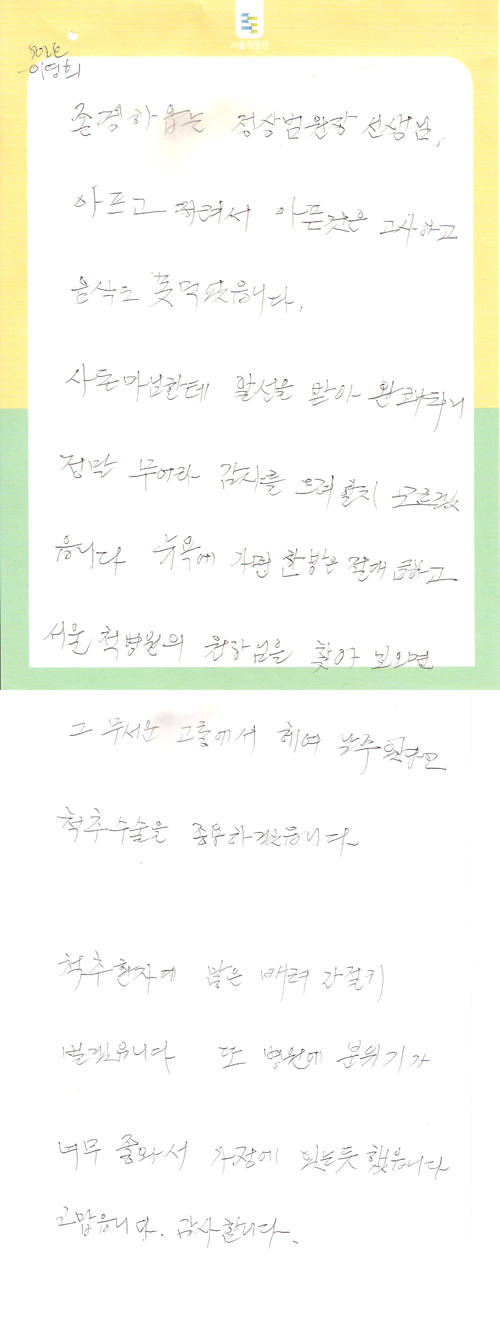 서울척병원
이영희
존경하옵는 정상범원장 선생님,
아프고 저려서 아픈것은 고사하고
음식도 못먹었읍니다.
사돈마님한테 알선을 받아 완쾌하니
정말 무어라 감사를 드려할지 모르겠
읍니다 뉴욕에 가면 한방은 절대 금하고
서울 척병원의 원장님을 찾아 뵈오면
그 무서운 고통에서 헤여
척추수술을 종용하겠읍니다
척추환자에 많은 배려 간절히
빌겠읍니다 또 병원에 분위기가
너무 좋와서 가정에 있는듯 했읍니다
고맙읍니다. 감사합니다.